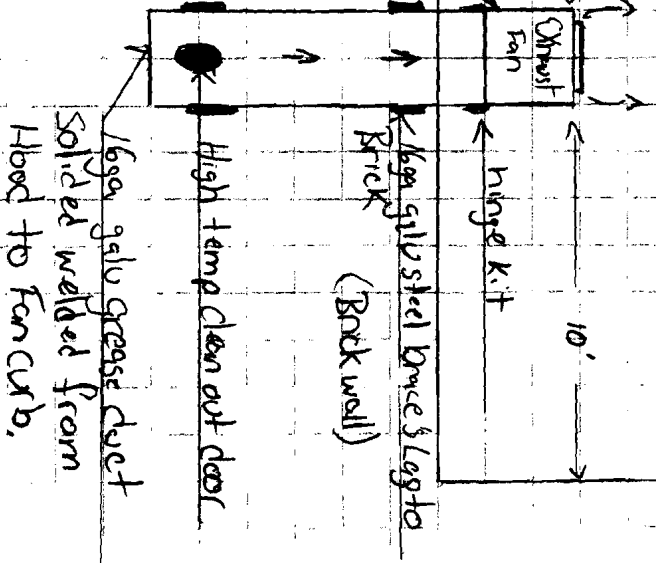 Exhaust
Fan
10'
hinge kit
16ga galv steel brace's Lag to
Brick
(Brick wall)
High temp clean out door
16ga galv grease duct
Solided welded from
Hood to Fan curb.